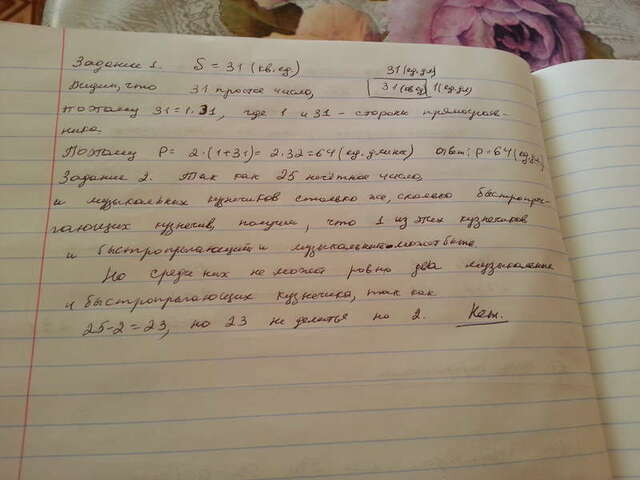 Задание 1. S = 31 (кв.ед) 31 (ед.дл)
Видим, что 31 простое число, 31 (кв.ед) 1 (ед.дл)
поэтому 31 = 1·31, где 1 и 31 - стороны прямоуголь-
ника.
Поэтому P = 2·(1+31) = 2·32 = 64 (ед. длины) Ответ: P = 64 (ед.дл)
Задание 2. Так как 25 нечётное число,
и музыкальных кузнечиков столько же, сколько быстропры-
гающих кузнечив, получим, что 1 из этих кузнечиков
и быстропрыгающий и музыкальный может быть.
Но среди них не может ровно два музыкальные
и быстропрыгающих кузнечика, так как
25-2=23, но 23 не делиться на 2.